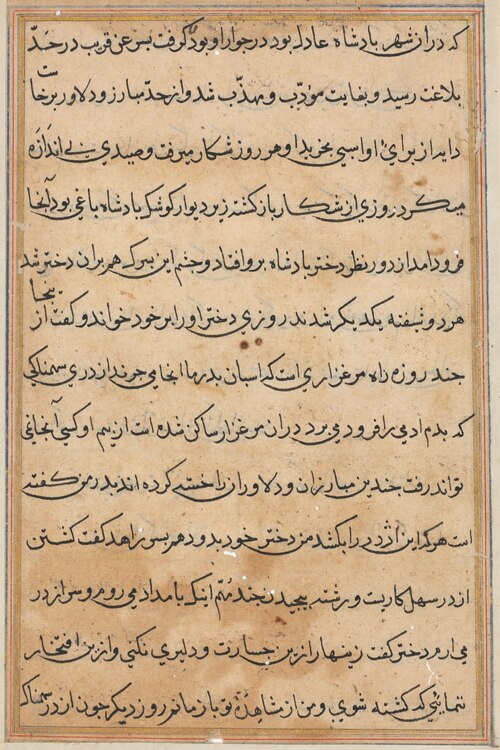 که دران شهر بادشاه عادله بود در جوار او بود کرفت بس عن قریب در حدّ
بلاغت رسید و بغایت مودّب و مهذّب شد و از حدّ مبارز و دلاور برخاست
دایه از برای او اسبی بخرید او هر روز شکار میرفت و صیدی بی اندازه
میکرد روزی از شکار باز کشته زیر دیوار کوشک بادشاه باغی بود آنجا
فرود امد از دور نظر دختر بادشاه برو افتاد و چشم این بسر که هم بران دختر شد
هر دو شیفته یکدیکر شدند روزی دختر او را بر خود خواند و کفت از ینجا
جند روزه راه مرغزاری است که اسبان بدرها انجا می جرند از دری سهمناکی
که بدم ادمی را فرود می برد دران مرغزار ساکن شده است از بیم او کسی آنجا نمی
تواند رفت جندین مبارزان و دلاوران را خسته کرده اند بدر من کفته
است هر که این اژدر را بکشد من دختر خود بدو دهم بسر زاهد کفت کشتن
اژدر سهل کاریست و رشته بیجیده جند نهم اینک بامداد می روم و سر اژدر
می ارم دختر کفت زینهار ازین جسارت و دلیری نکنی و ازین افتخار
ننمائی که کشته شوی و من از مشاهدهٔ تو باز مانم روز دیکر جون اژدر سهمناک